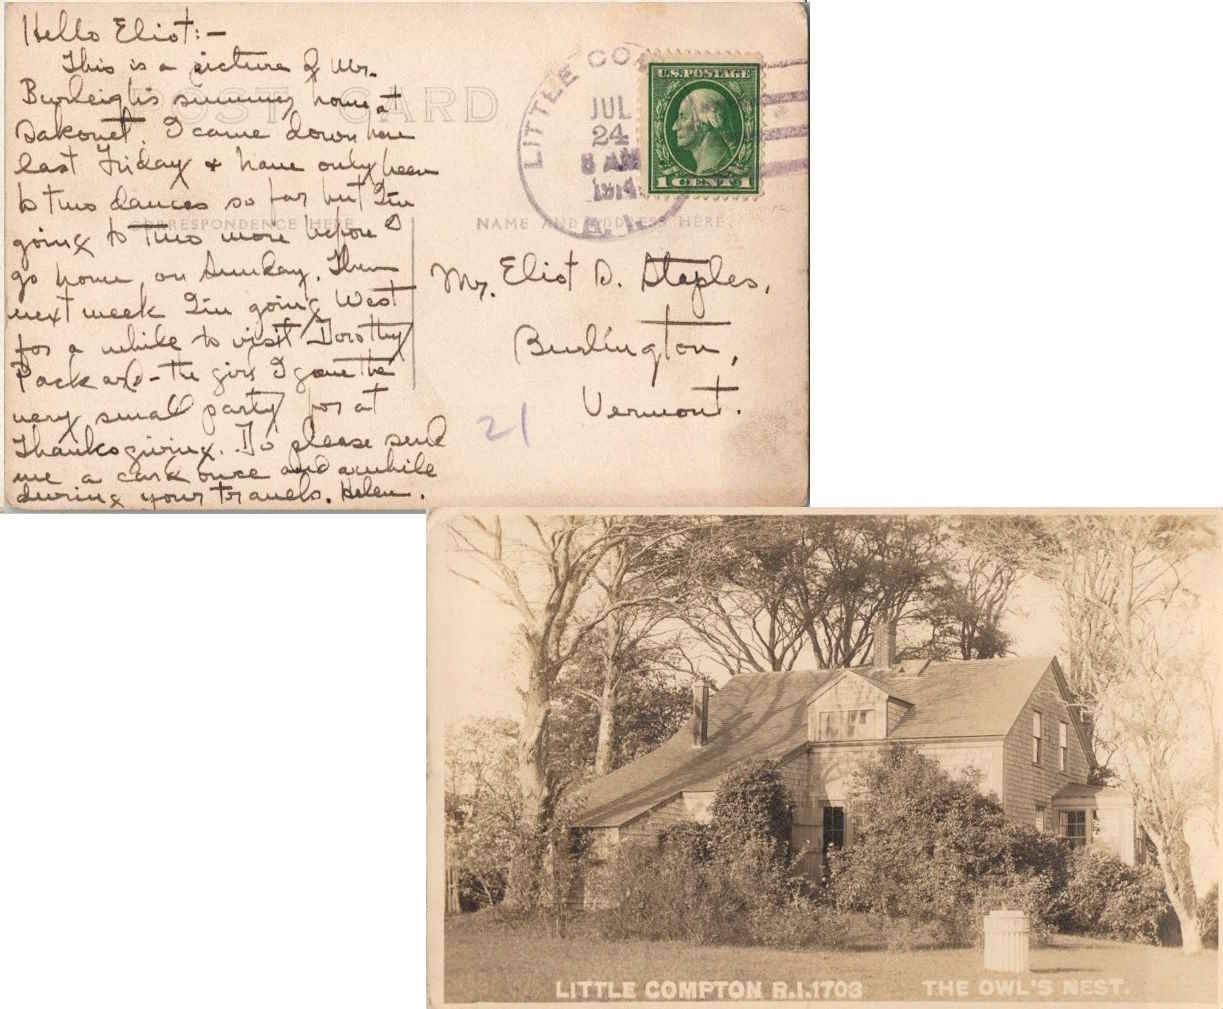 Hello Eliot:-
This is a picture of Mr.
Burleigh's summer home at
Sakonet. I came down here
last Friday & have only been
to two dances so far but I'm
going to two more before I
go home on Sunday. Then
next week I'm going West
for a while to visit Dorothy
Packard - the girl I gave the
very small party for at
Thanksgiving. Do please send
me a card once and awhile
during your travels. Helen.
POST CARD
CORRESPONDENCE HERE
NAME AND ADDRESS HERE
LITTLE COM
JUL
24
8 AM
1914
R.I.
U.S. POSTAGE
1 CENT 1
Mr. Eliot D. Staples,
Burlington,
Vermont.
21
LITTLE COMPTON R.I. 1703 THE OWL'S NEST.